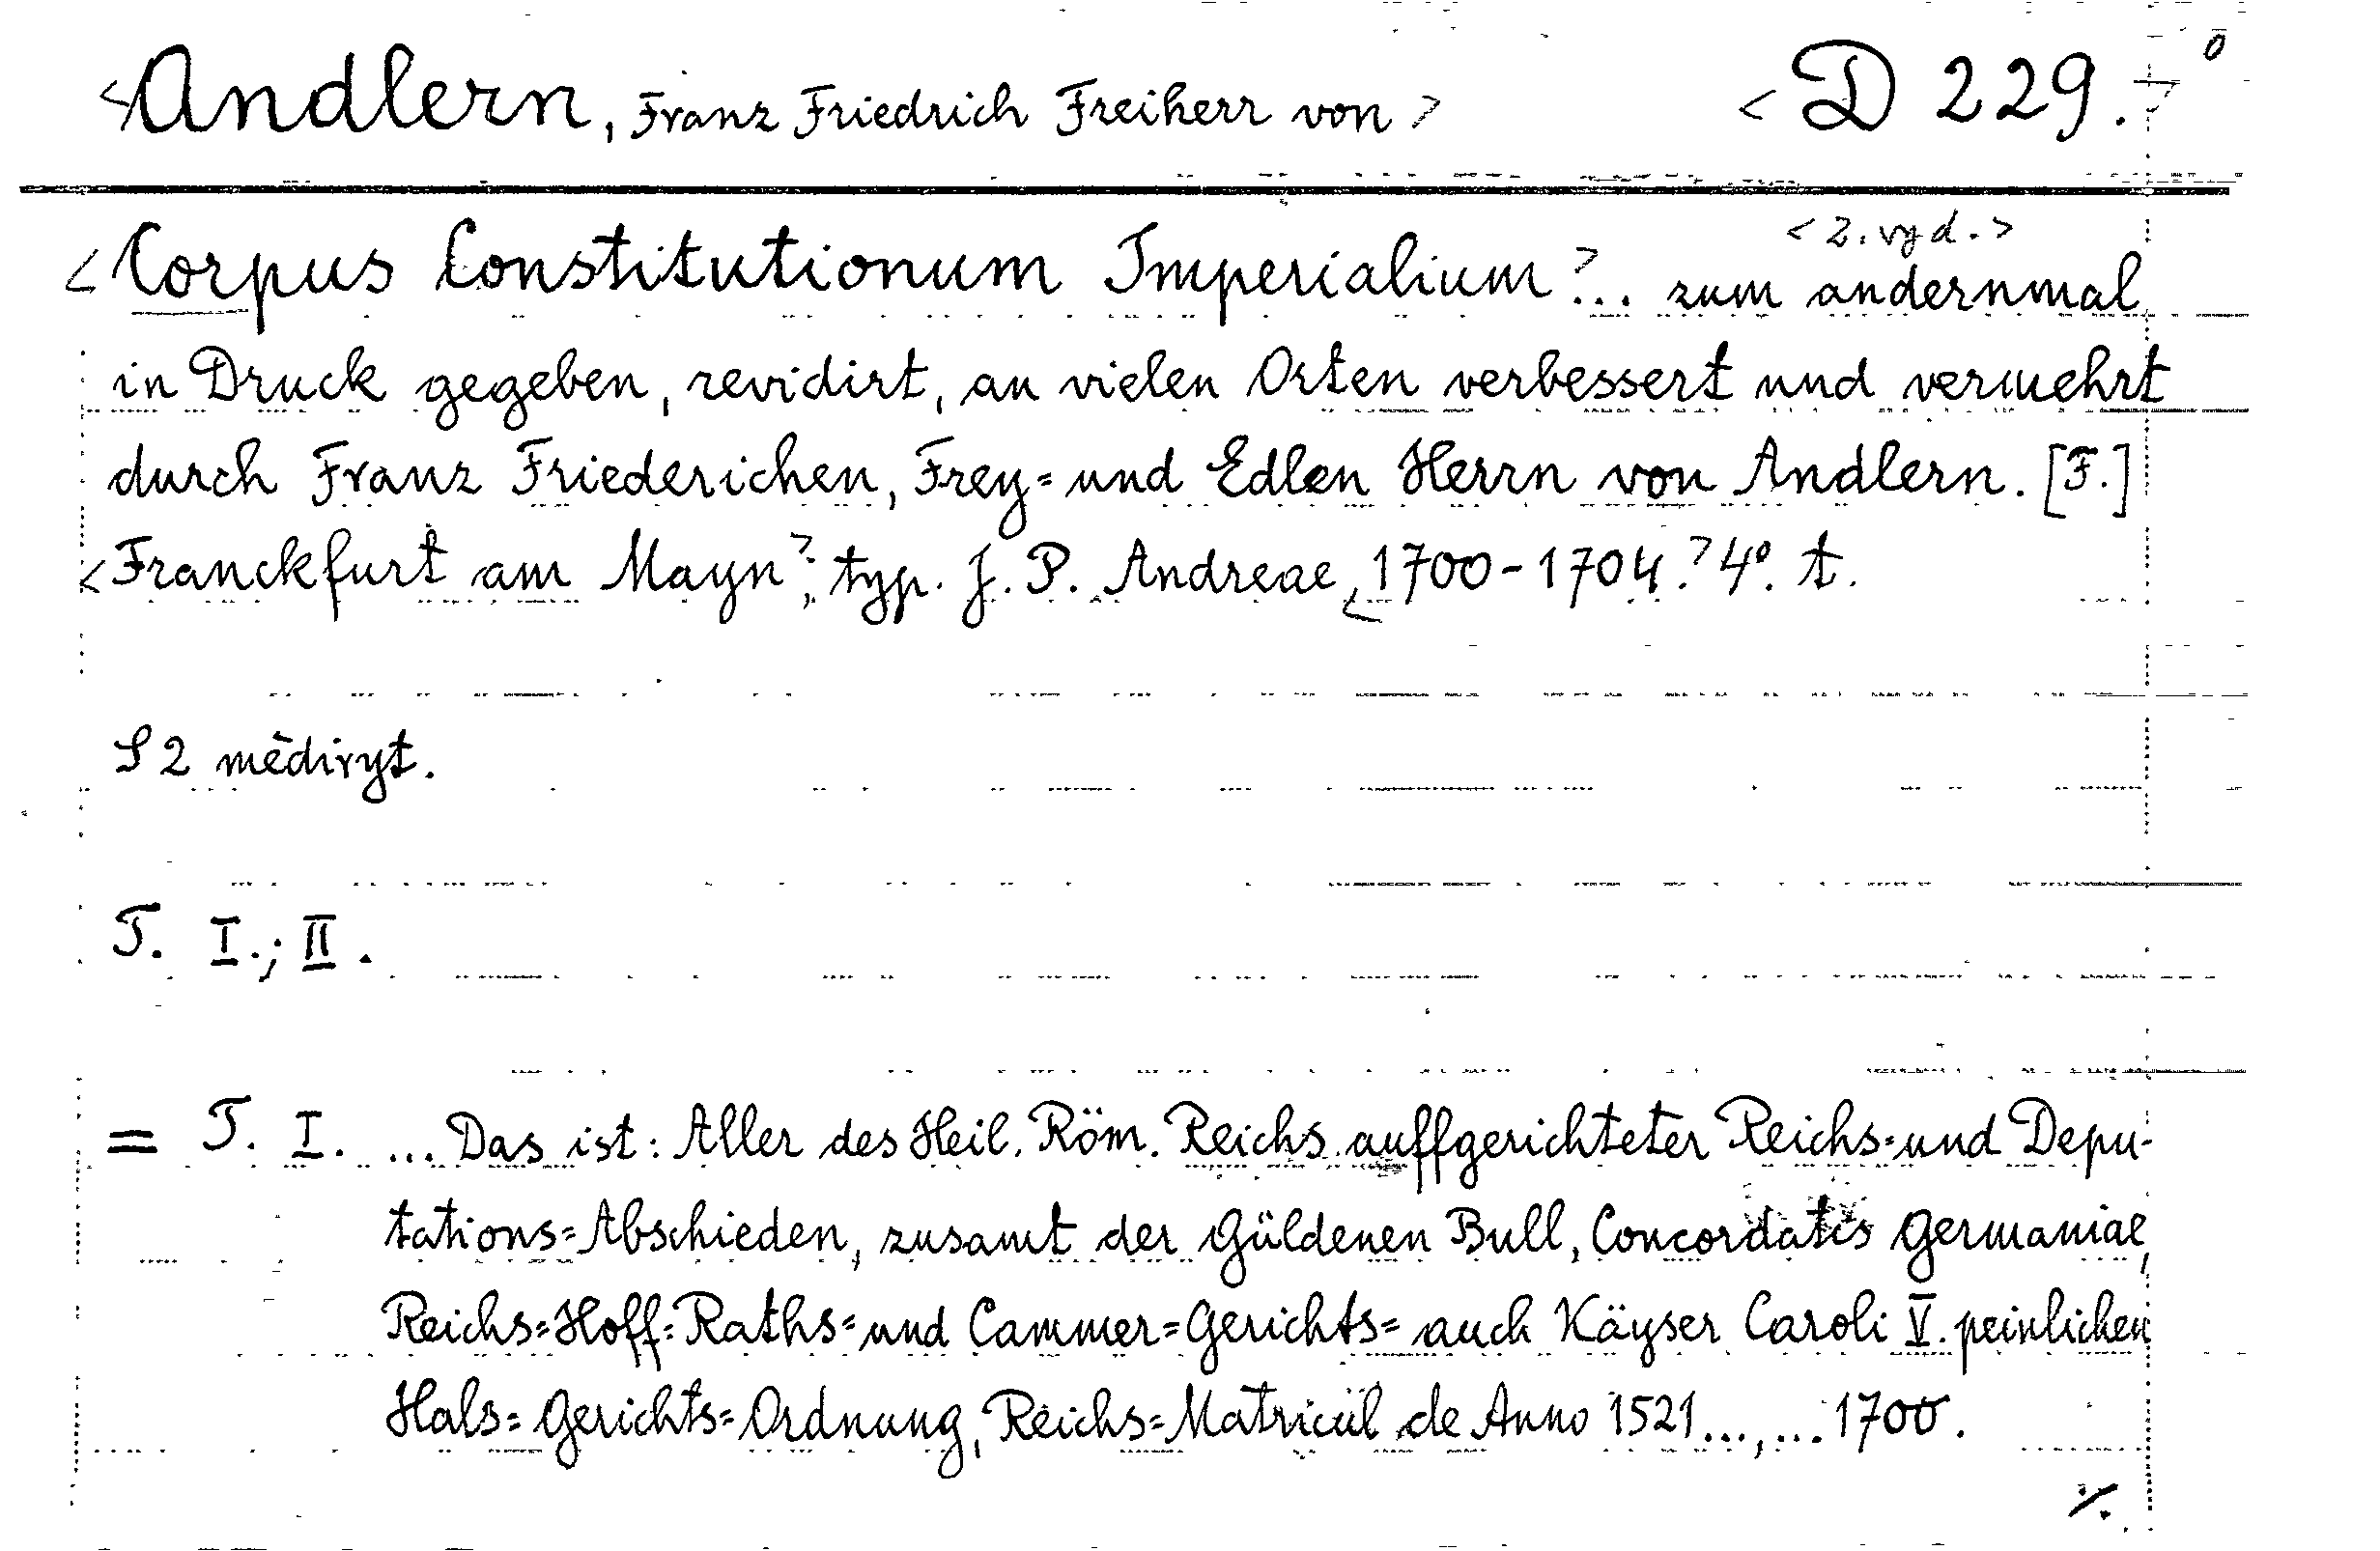 <Andlern, Franz Friedrich Freiherr von> <D 229.> o
<2. vyd.>
<Corpus Constitutionum Imperialium>... zum andernmal
in Druck gegeben, revidirt, an vielen Orten verbessert und vermehrt
durch Franz Friederichen, Frey= und Edlen Herrn von Andlern. [F.]
<Franckfurt am Mayn>, typ. J. P. Andreae, <1700-1704.> 4°. t.
S 2 mědiryt.
T. I.; II.
= T. I. ... Das ist: Aller des Heil. Röm. Reichs auffgerichteter Reichs= und Depu-
tations=Abschieden, zusamt der Güldenen Bull, Concordatis Germaniae,
Reichs=Hoff=Raths= und Cammer=Gerichts= auch Käyser Caroli V. peinlichen
Hals=Gerichts=Ordnung, Reichs=Matricul de Anno 1521..., ... 1700.
./.